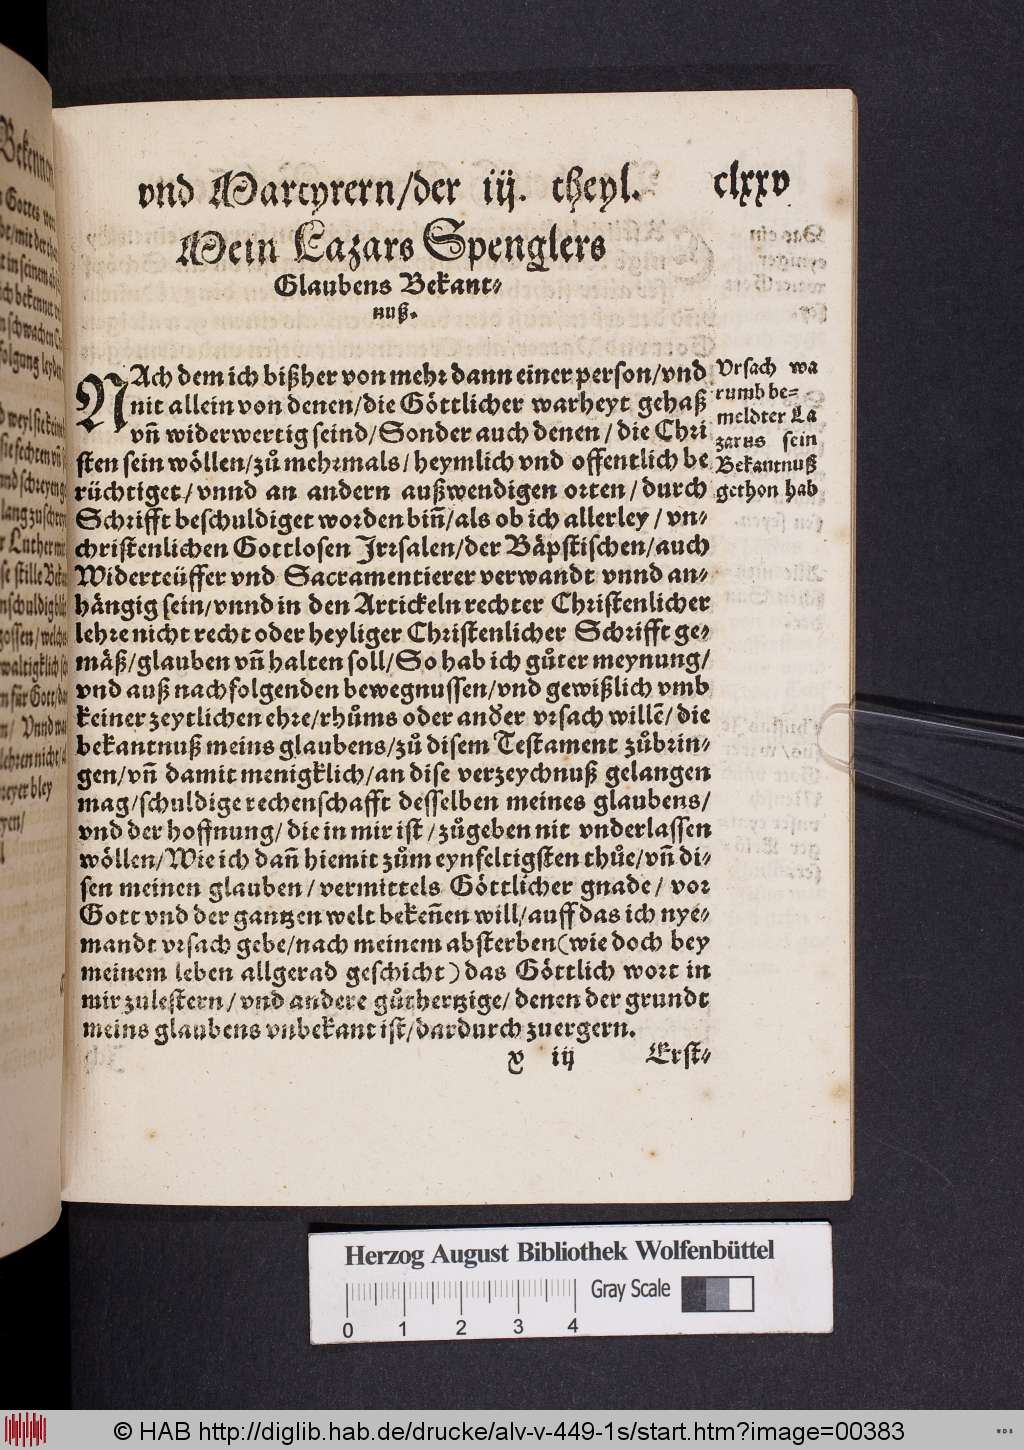 vnd Martyrern/der iij. theyl.
clxxv
Mein Lazars Spenglers
Glaubens Bekant⸗
nuß.
NAch dem ich bißher von mehr dann einer person/vnd
nit allein von denen/die Göttlicher warheyt gehaß
vñ widerwertig seind/Sonder auch denen/die Chri
sten sein wöllen/zů mehrmals/heymlich vnd offentlich be
rüchtiget/vnnd an andern außwendigen orten/durch
Schrifft beschuldiget worden biñ/als ob ich allerley/vn⸗
christenlichen Gottlosen Irrsalen/der Bäpstischen/auch
Widerteüffer vnd Sacramentierer verwandt vnnd an⸗
hängig sein/vnnd in den Artickeln rechter Christenlicher
lehre nicht recht oder heyliger Christenlicher Schrifft ge⸗
mäß/glauben vñ halten soll/So hab ich gůter meynung/
vnd auß nachfolgenden bewegnussen/vnd gewißlich vmb
keiner zeytlichen ehre/rhůms oder ander vrsach willē/die
bekantnuß meins glaubens/zů disem Testament zůbrin⸗
gen/vñ damit menigklich/an dise verzeychnuß gelangen
mag/schuldige rechenschafft desselben meines glaubens/
vnd der hoffnung/die in mir ist/zůgeben nit vnderlassen
wöllen/Wie ich dañ hiemit zům eynfeltigsten thůe/vñ di⸗
sen meinen glauben/vermittels Göttlicher gnade/vor
Gott vnd der gantzen welt bekeñen will/auff das ich nye⸗
mandt vrsach gebe/nach meinem absterben(wie doch bey
meinem leben allgerad geschicht)das Göttlich wort in
mir zulestern/vnd andere gůthertzige/denen der grundt
meins glaubens vnbekant ist/dardurch zuergern.
x iij
Erst⸗
Vrsach wa
rumb be⸗
meldter La
zarus sein
Bekantnuß
gethon hab
Herzog August Bibliothek Wolfenbüttel
Gray Scale
0 1 2 3 4
© HAB http://diglib.hab.de/drucke/alv-v-449-1s/start.htm?image=00383